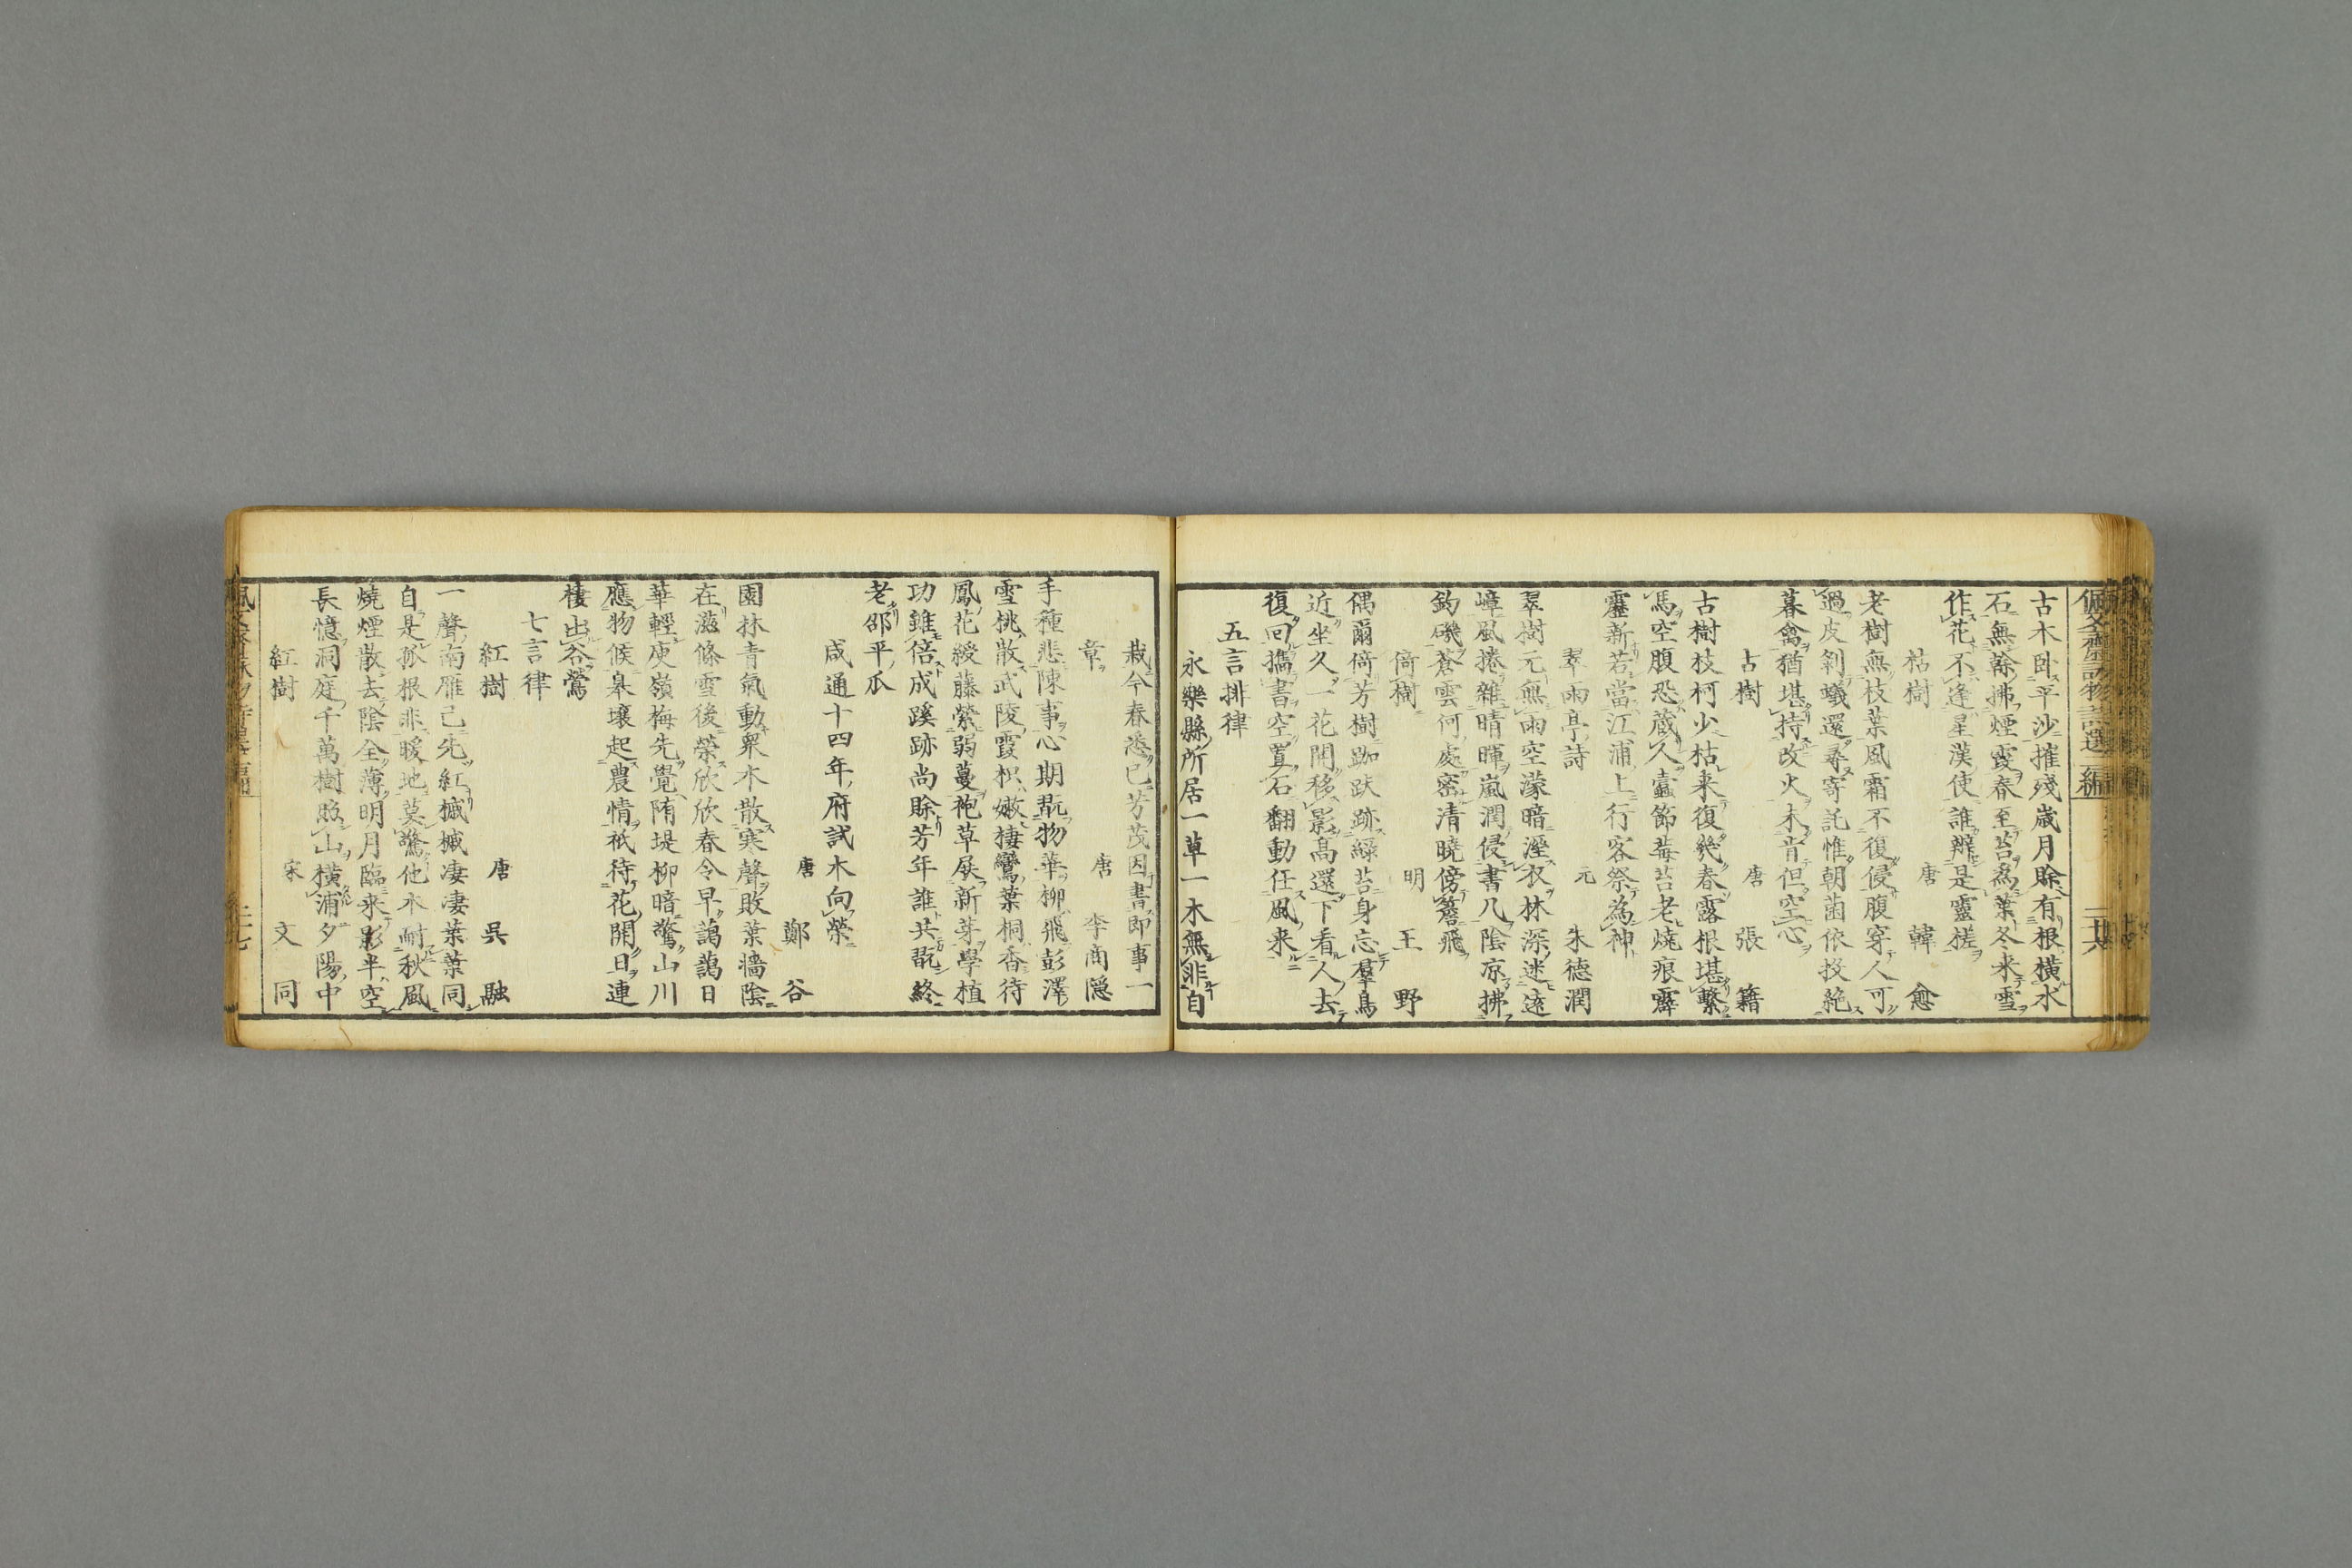 佩文齋詠物詩選二編
二十六
古木卧平沙摧殘歲月賒有根横水
石無榦拂煙霞春至苔為葉冬来雪
作花不逢星漢使誰辨是靈槎
枯樹 唐 韓愈
老樹無枝葉風霜不復侵腹穿人可
過皮剝蟻還尋寄託惟朝菌依投絶
暮禽猶堪持改火未肯但空心
古樹 唐 張籍
古樹枝柯少枯来復幾春露根堪繫
馬空腹恐藏人蠧節莓苔老燒痕霹
靂新若當江浦上行客祭為神
翠雨亭詩 元 朱德潤
翠樹元無雨空濛暗溼衣林深迷遠
嶂風捲雜晴暉嵐潤侵書几陰凉拂
釣磯蒼雲何處密清曉傍簷飛
倚樹 明 王野
偶爾倚芳樹跏趺跡緑苔身忘羣鳥
近坐久一花開移影髙還下看人去
復回攜書空置石翻動任風来
五言排律
永樂縣所居一草一木無非自
栽今春悉已芳茂因書即事一
章 唐 李商隠
手種悲陳事心期翫物華柳飛彭澤
雪桃散武陵霞枳嫩棲鸞葉桐香待
鳳花綬藤縈弱蔓袍草展新芽學植
功雖倍成蹊跡尚賒芳年誰共翫終
老邵平瓜
咸通十四年府試木向榮
唐 鄭谷
園林青氣動衆木散寒聲敗葉墻陰
在滋條雪後榮欣欣春令早藹藹日
華輕庾嶺梅先覺隋堤柳暗驚山川
應物候皋壤起農情祇待花開日連
棲出谷鶯
七言律
紅樹 唐 吳融
一聲南雁已先紅槭槭凄凄葉葉同
自是孤根非暖地莫驚他木耐秋風
燒煙散去陰全薄明月臨来影半空
長憶洞庭千萬樹照山横浦夕陽中
紅樹 宋 文同
二十七